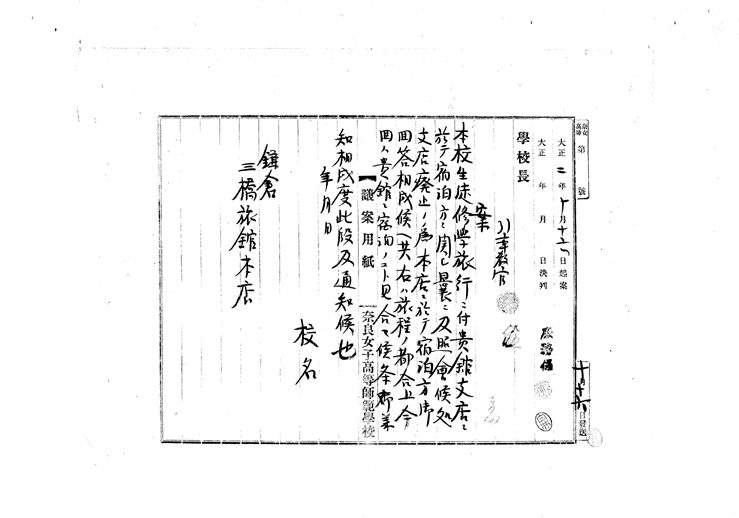 奈女高師 第 號
大正 二年 十月十六日起案
大正 年 月 日決判
庶務係
十月十六日發送
學校長
教官
案
本校生徒修學旅行ニ付貴館支店ニ
於テ宿泊方ニ関シ曩ニ及照會候処
支店廢止ノ為メ本店ニ於テ宿泊方御
回答相成候へ共右ハ旅程ノ都合上今
回ハ貴館ニ宿泊ノコト見合セ候条御承
知相成度此段及通知候也
年月日
校名
鎌倉
三橋旅館本店
議案用紙
奈良女子高等師範學校